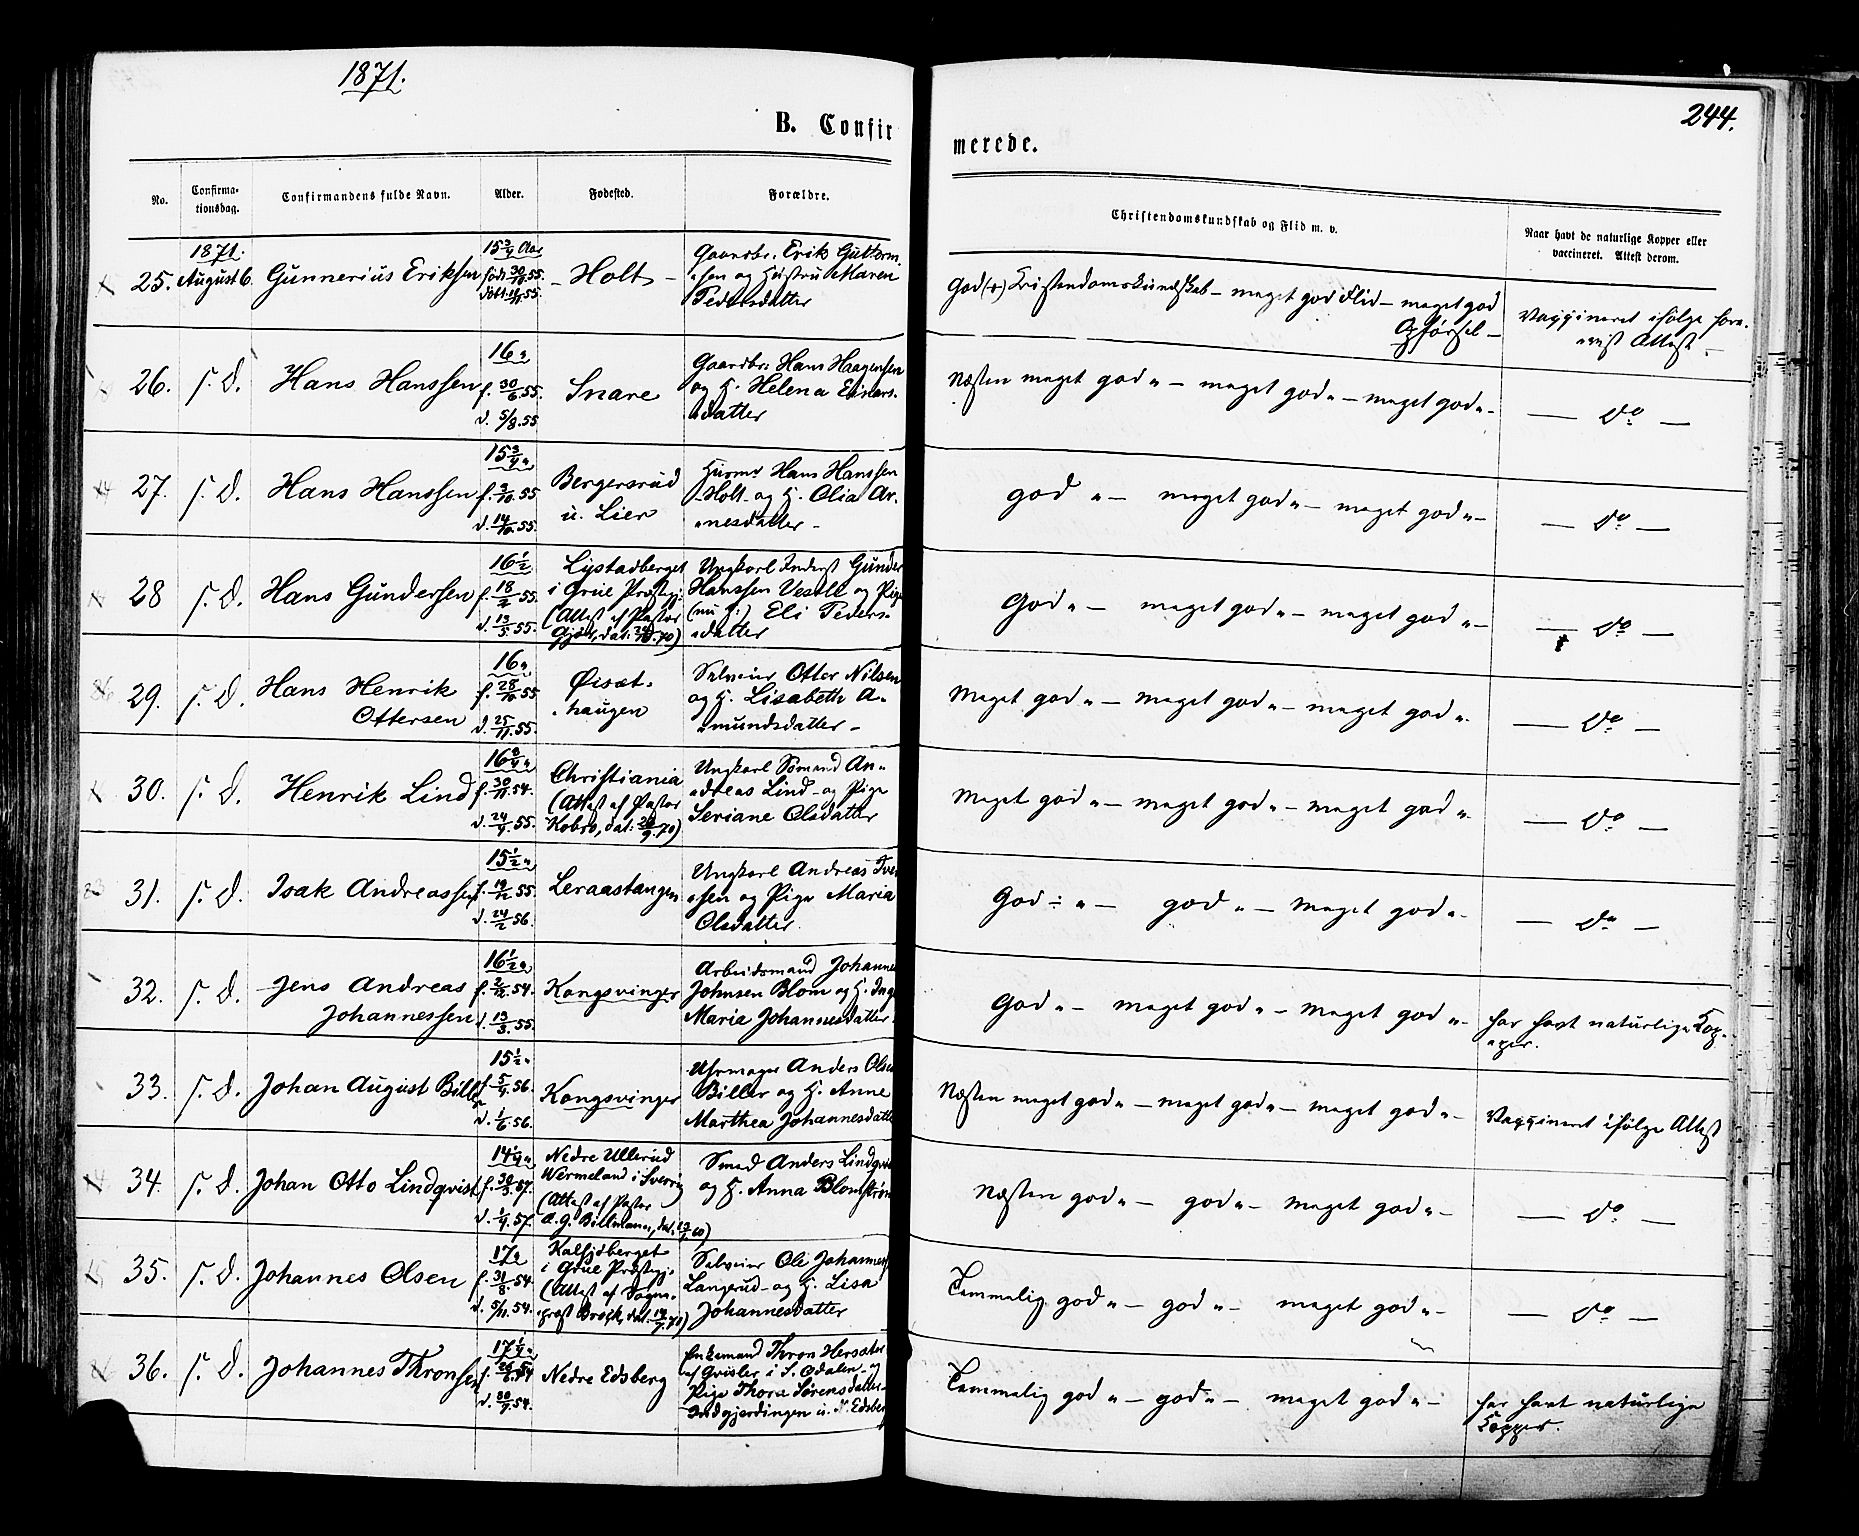 1871.
244.
B. Confir
merede.
No.
Confirma-
tionsdag.
Confirmandens fulde Navn.
Alder.
Fødested.
Forældre.
Christendomskundskab og Flid m. v.
Naar havt de naturlige Kopper eller
vaccineret. Attest derom.
1871.
25. August 6. Gunnerius Eriksen
15 3/4 Aar
født 30/10.55.
- Holt -
Gaardbr. Erik Guttorm-
sen og Hustru Maren
Pedersdatter
God (+) Kristendomskundskab - meget god Flid - meget god
Opførsel -
Vaccineret ifølge fore-
vist Attest -
26. s. D. Hans Hanssen
16 a
f. 30/6.55.
d. 5/8.55
Snare
Gaardbr. Hans Haagensen
og H. Helena Einars-
datter
Næsten meget god " - meget god " - meget god " -
— Do —
27. s. D. Hans Hanssen
15 3/4 a
f. 3/10.55
d. 14/10.55.
Bergersrud
u. Lier
Husmd Hans Hanssen
Holt og H. Olia Ar-
nesdatter -
god " - meget god " - meget god " -
— Do —
28 s. D. Hans Gundersen
16 1/2
f. 18/2.55.
d. 13/5.55.
Lystadberget
i Grue Præstgj:
(Attest af Pastor
Ungkarl Inderst Gunder
Hanssen Vesile og Pige
(nu H:) Eli Peders-
datter
God " - meget god " - meget god " -
— Do —
29. s. D. Hans Henrik
Ottersen
16 a
f. 28/10.55
d. 25/11.55.
Øisæt-
haugen
Selveier Otter Nilsen
og H. Lisabeth A-
mundsdatter -
Meget god " - meget god " - meget god "
— Do —
30. s. D. Henrik Lind
16 3/4 a
f. 30/11.54.
d. 24/4.55.
Christiania
(Attest af Pastor
Kobro, dat: 20/9.70)
Ungkarl Sømand An-
dreas Lind og Pige
Seriane Olsdatter
Meget god " - meget god " - meget god "
— Do —
31. s. D. Isak Andreassen
15 1/2 a
f. 19/12.55.
d. 24/2.56.
Leraastangen
Ungkarl Andreas Iver
sen og Pige Maria
Olsdatter.
God ÷ " - god " - meget god " -
— Do —
32. s. D. Jens Andreas
Johannessen
16 1/2 a
f. 2/12.54.
d. 13/3.55.
Kongsvinger
Arbeidsmand Johannes
Johnsen Blom og H. Inge
Maria Johannesdatter.
God " - meget god " - meget god " -
har havt naturlige Kop-
per.
33. s. D. Johan August Biller
15 1/2 a
f. 5/4.56.
d. 1/6.56.
Kongsvinger
Uhrmager Anders Olsen
Biller og H. Anne
Marthea Johannesdatter
Næsten meget god " - meget god " - meget god " -
Vaccineret ifølge Attest
34. s. D. Johan Otto Lindqvist
14 1/4 a
f. 30/3.57.
d. 1/4.57.
Nedre Ullerud
Wermeland i Sverrig
(Attest af Pastor
A. G. Billmann, dat:
Smed Anders Lindqvist
og H. Anna Blomstrøm
Næsten god " - god " - meget god " -
— Do —
35. s. D. Johannes Olsen
17 a
f. 31/8.54.
d. 5/11.54.
Kalsjöberget
i Grue Præstgj.
(Attest af Sogne-
præst Brock, dat:
Selveier Ole Johannes
Langrud og H. Lisa
Johannesdatter
Temmelig god " - god " - meget god " -
— Do —
36. s. D. Johannes Thronsen
17 1/4 a
d. 30/7.54.
Nedre Edsberg
Enkemand Thron Hersæter
af Gvisler i S. Odalen og
Pige Thora Sørensdatter
u. N. Edsberg
Temmelig god " - god " - meget god " -
har havt naturlige
Kopper.